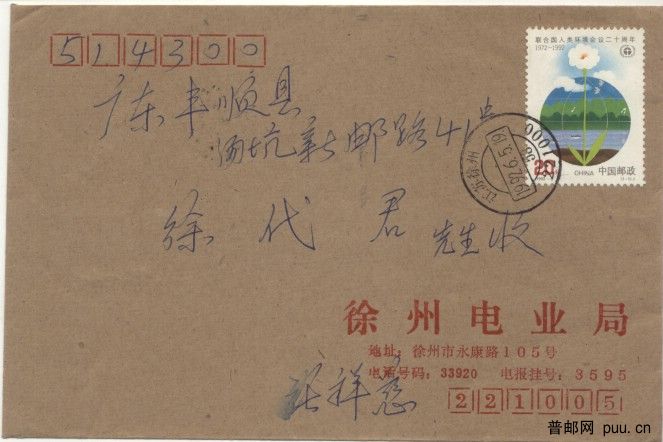 514300
联合国人类环境会议二十周年
1972-1992
广东丰顺县
新邮路41号
徐代君 先生收
江苏徐州
1992.6.5.19
20
CHINA 中国邮政
徐州电业局
地址：徐州市永康路105号
电话号码：33920 电报挂号：3595
张祥
221005
普邮网 puu.cn